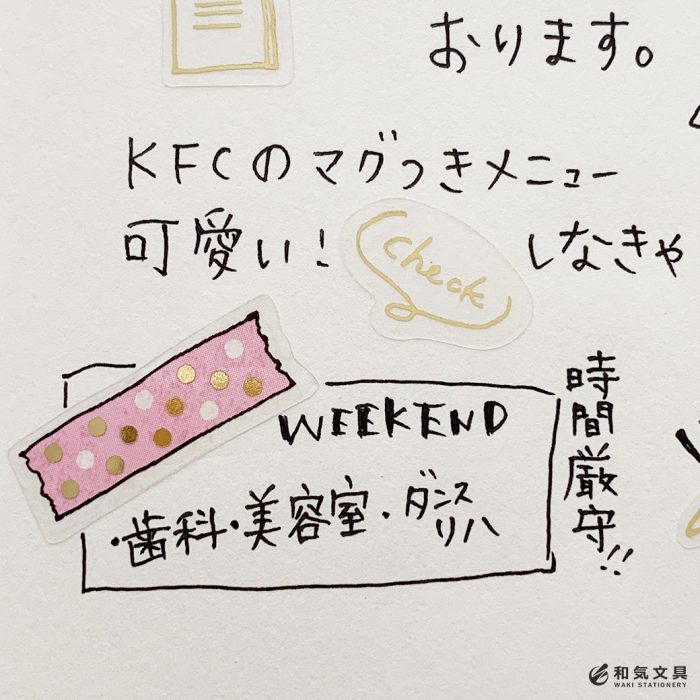 おります。
KFCのマグつきメニュー
可愛い! check しなきゃ
WEEKEND
・歯科・美容室・ダンスリハ
時間厳守!!
和気文具
WAKI STATIONERY